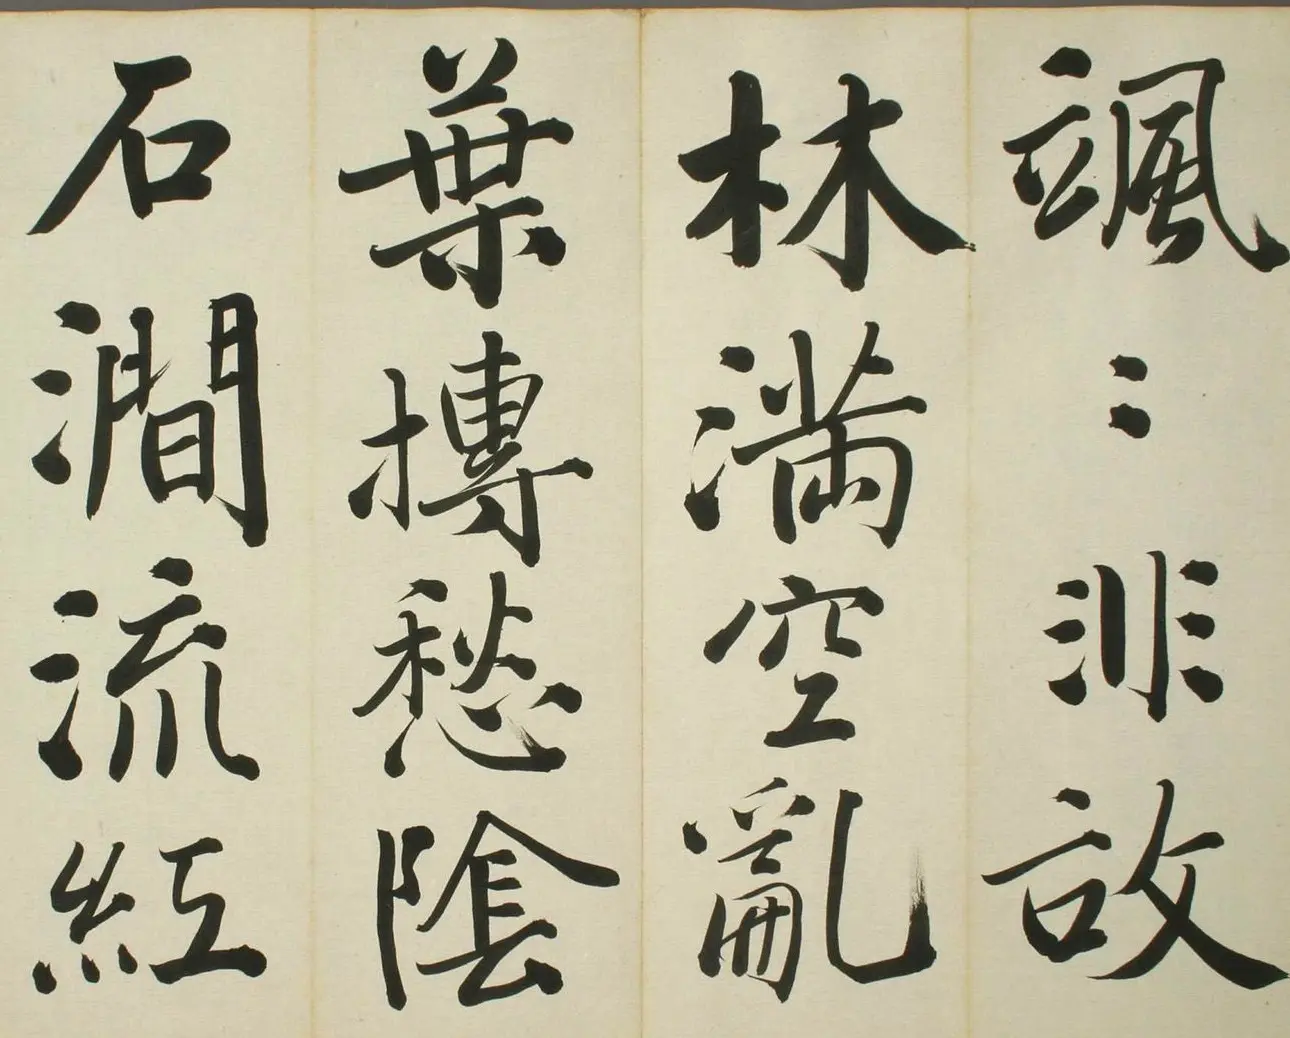 颯〻非故
林滿空亂
葉摶愁陰
石澗流紅